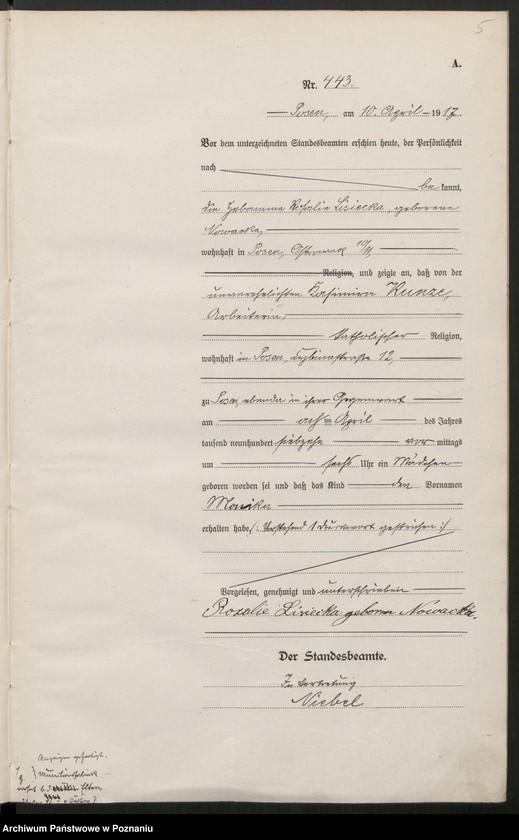 5
A.
Nr. 443.
Posen, am 10. April 1917.
Vor dem unterzeichneten Standesbeamten erschien heute, der Persönlichkeit
nach
be kannt,
die Hebamme Rosalie Lisiecka, geborene
Nowacka,
wohnhaft in Posen, Ostrowek 10/11,
Religion, und zeigte an, daß von der
unverehelichten Kasimira Kunze,
Arbeiterin,
katholischer Religion,
wohnhaft in Posen, 12,
zu Posen, ebenda in ihrer Gegenwart
am acht April des Jahres
tausend neunhundert siebzehn vor mittags
um sechs Uhr ein Mädchen
geboren worden sei und daß das Kind den Vornamen
Monika
erhalten habe. (: Vorstehend 1 Druckwort gestrichen :)
Vorgelesen, genehmigt und unterschrieben
Rosalie Lisiecka geborne Nowacka.
Der Standesbeamte.
In Vertretung
Niebel
Anzeigen gefertigt.
Eltern
Archiwum Państwowe w Poznaniu